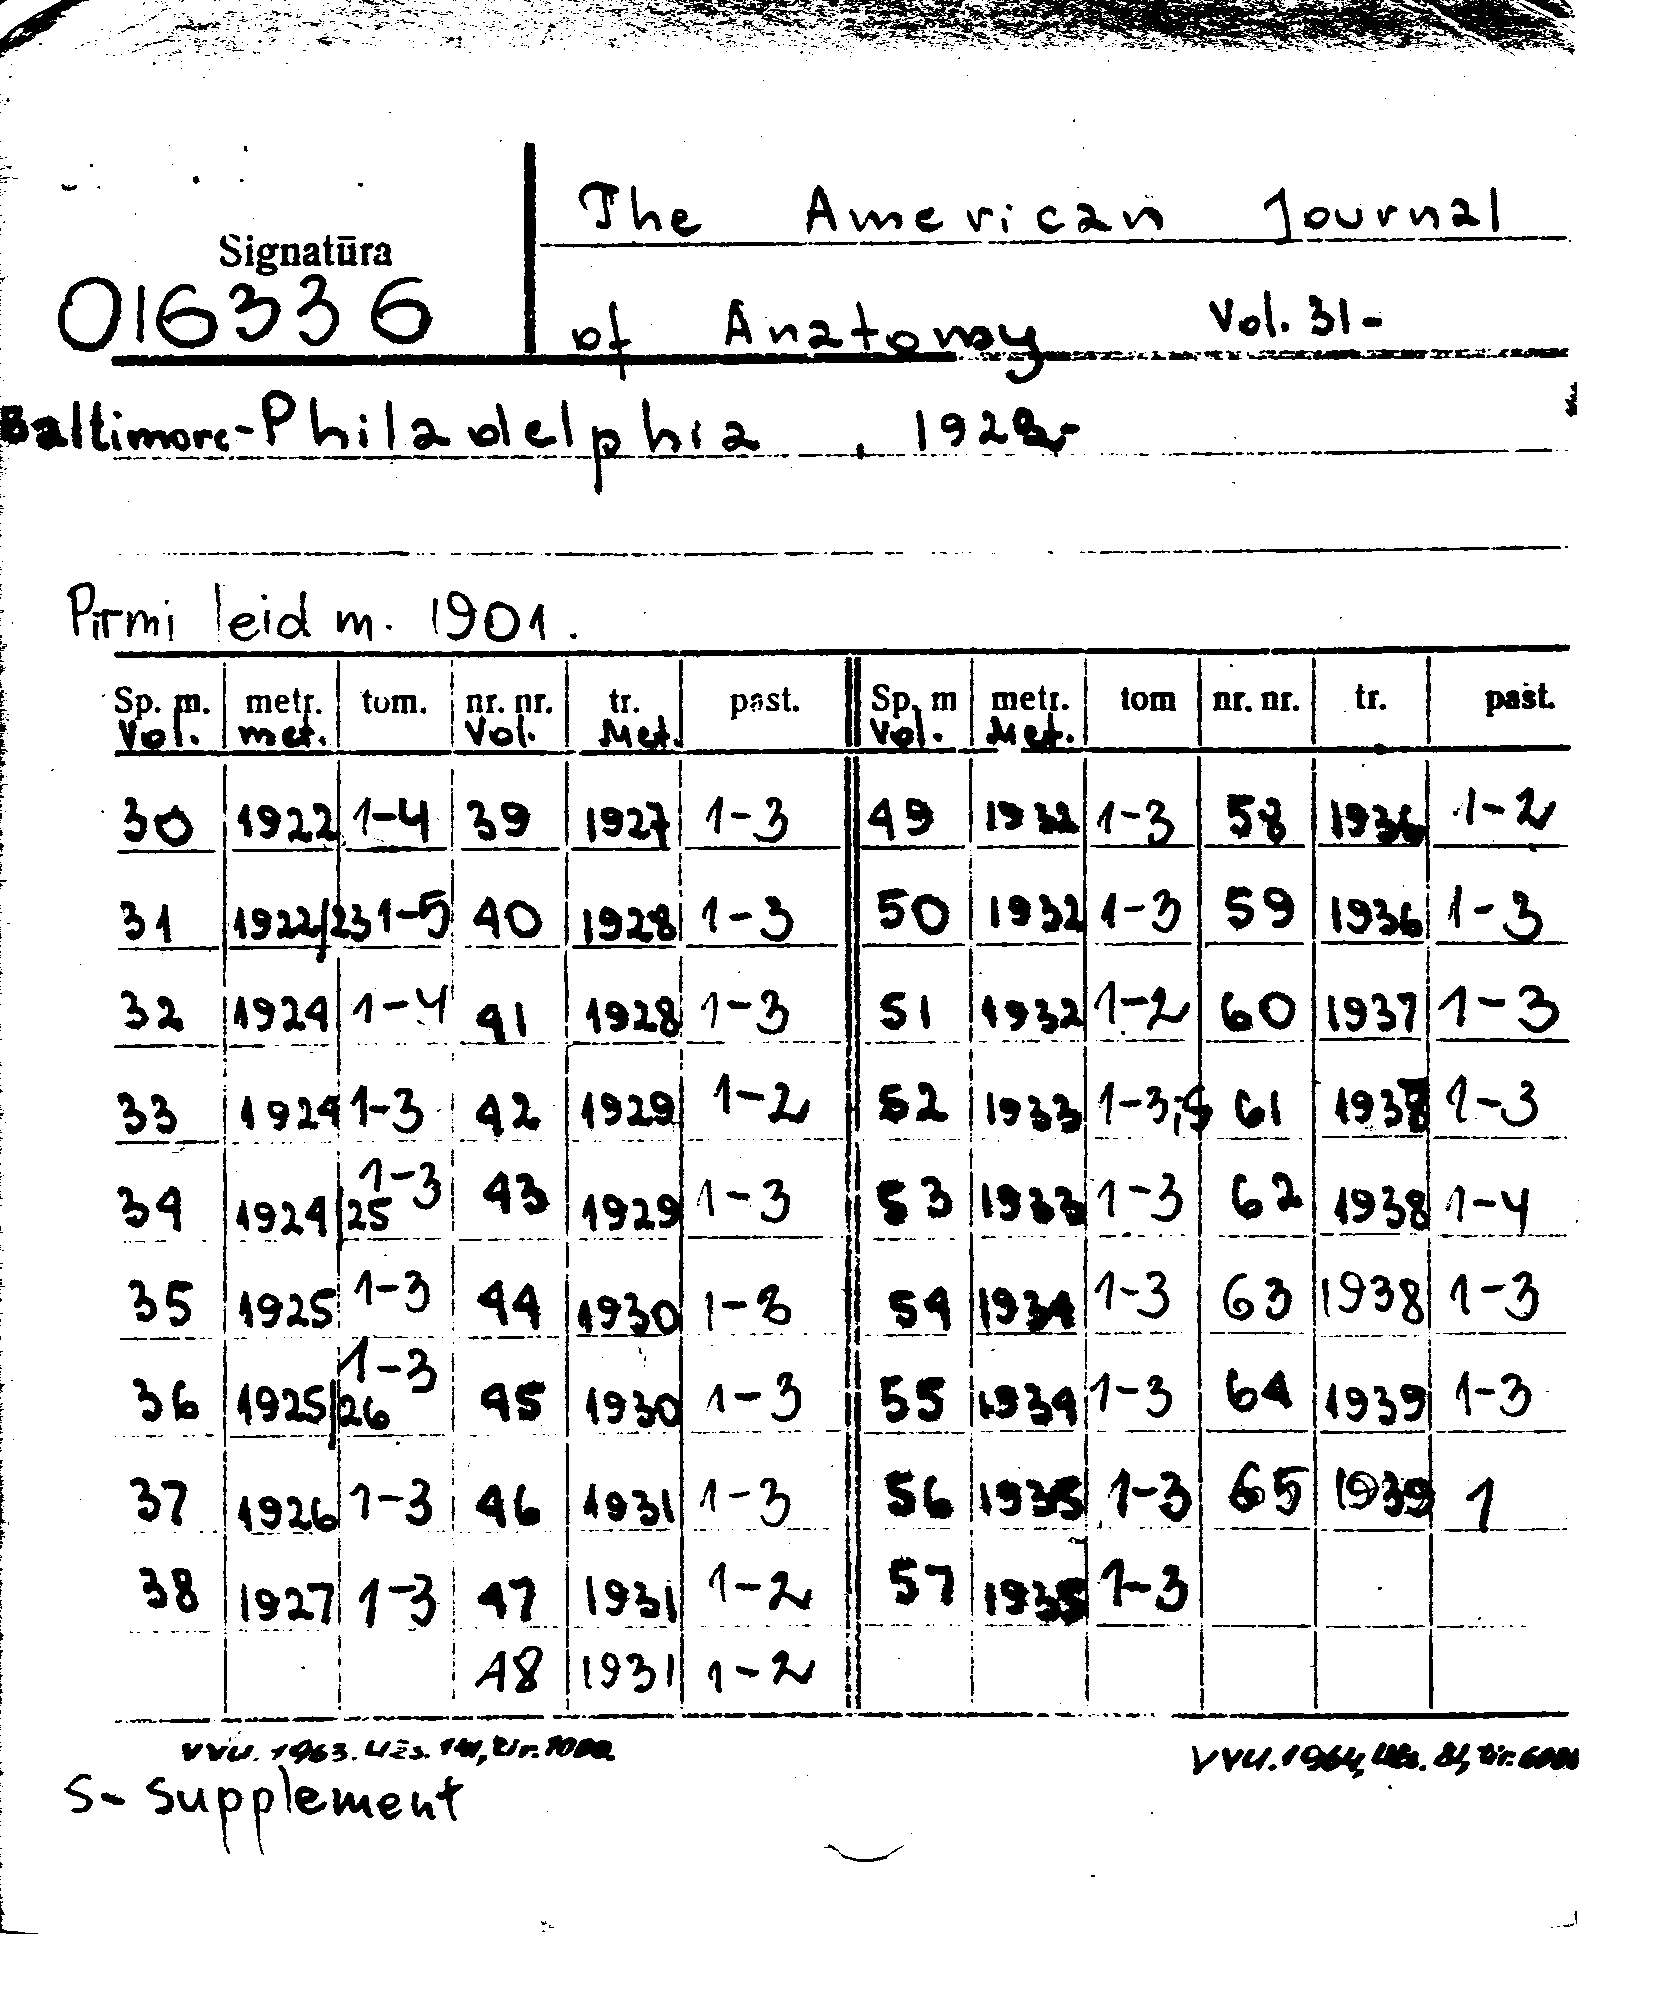 The American Journal
Signatūra
016336
of Anatomy Vol. 31-
Baltimore-Philadelphia, 1922-
Pirmi leid m. 1901.
Sp. m. metr. tom. nr. nr. tr. past. Sp. m metr. tom nr. nr. tr. past.
Vol. met. Vol. Met. Vol. Met.
30 1922 1-4 39 1927 1-3 49 1932 1-3 58 1936 1-2
31 1922/23 1-5 40 1928 1-3 50 1932 1-3 59 1936 1-3
32 1924 1-4 41 1928 1-3 51 1932 1-2 60 1937 1-3
33 1924 1-3 42 1929 1-2 52 1933 1-3;S 61 1937 1-3
34 1924/25 1-3 43 1929 1-3 53 1933 1-3 62 1938 1-4
35 1925 1-3 44 1930 1-3 54 1934 1-3 63 1938 1-3
36 1925/26 1-3 45 1930 1-3 55 1934 1-3 64 1939 1-3
37 1926 1-3 46 1931 1-3 56 1935 1-3 65 1939 1
38 1927 1-3 47 1931 1-2 57 1935 1-3
48 1931 1-2
VVU. 1963. Užs. VVU. 1964, Užs. 81, tir.
S- Supplement